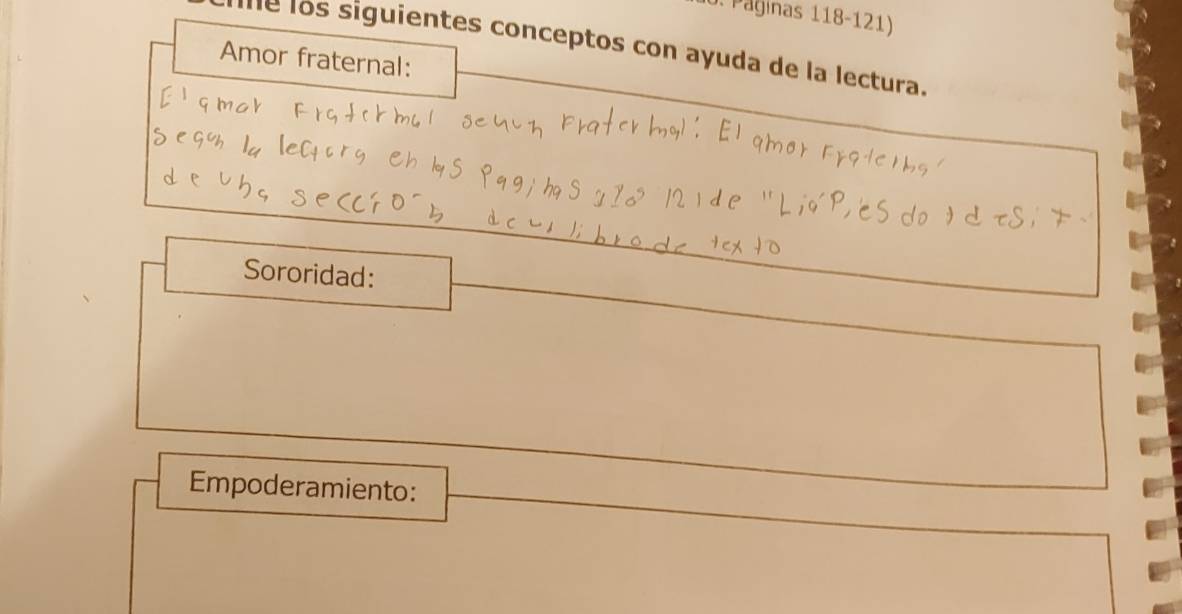 Páginas 118-121)
los siguientes conceptos con ayuda de la lectura.
Amor fraternal:
El amor Fraternal segun Fraternal: El amor Fraternal
segun la lectura en las Paginas 121 de
de una seccion de un libro de texto
Sororidad:
Empoderamiento: